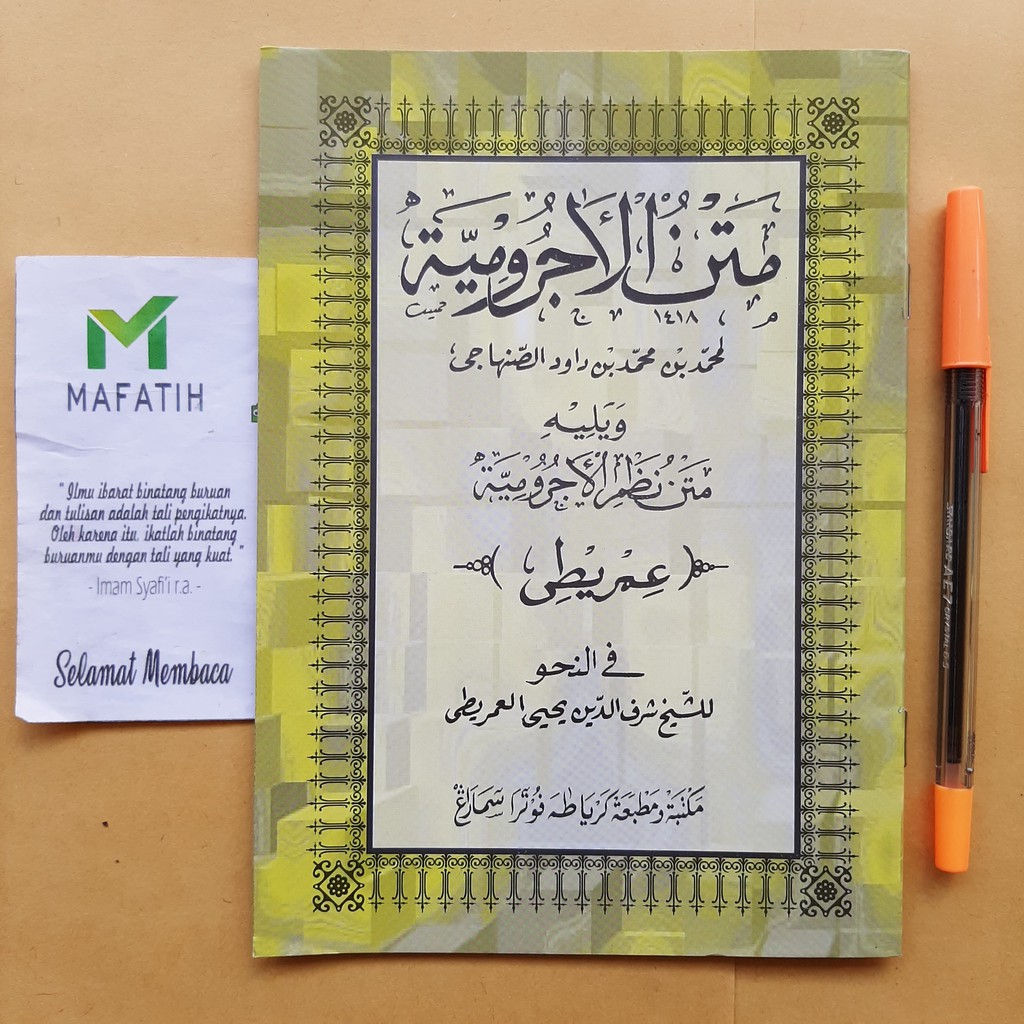 متن الأجرومية
١٤١٨
لمحمد بن محمد بن داود الصنهاجى
وَيَلِيْهِ
متن نظم الأجرومية
﴿ عِمْرِيْطِى ﴾
في النحو
للشيخ شرف الدّين يحيى العمريطى
مكتبة ومطبعة كرياطه فوترا سمارڠ
MAFATIH
" Ilmu ibarat binatang buruan
dan tulisan adalah tali pengikatnya.
Oleh karena itu, ikatlah binatang
buruanmu dengan tali yang kuat. "
- Imam Syafi'i r.a. -
Selamat Membaca